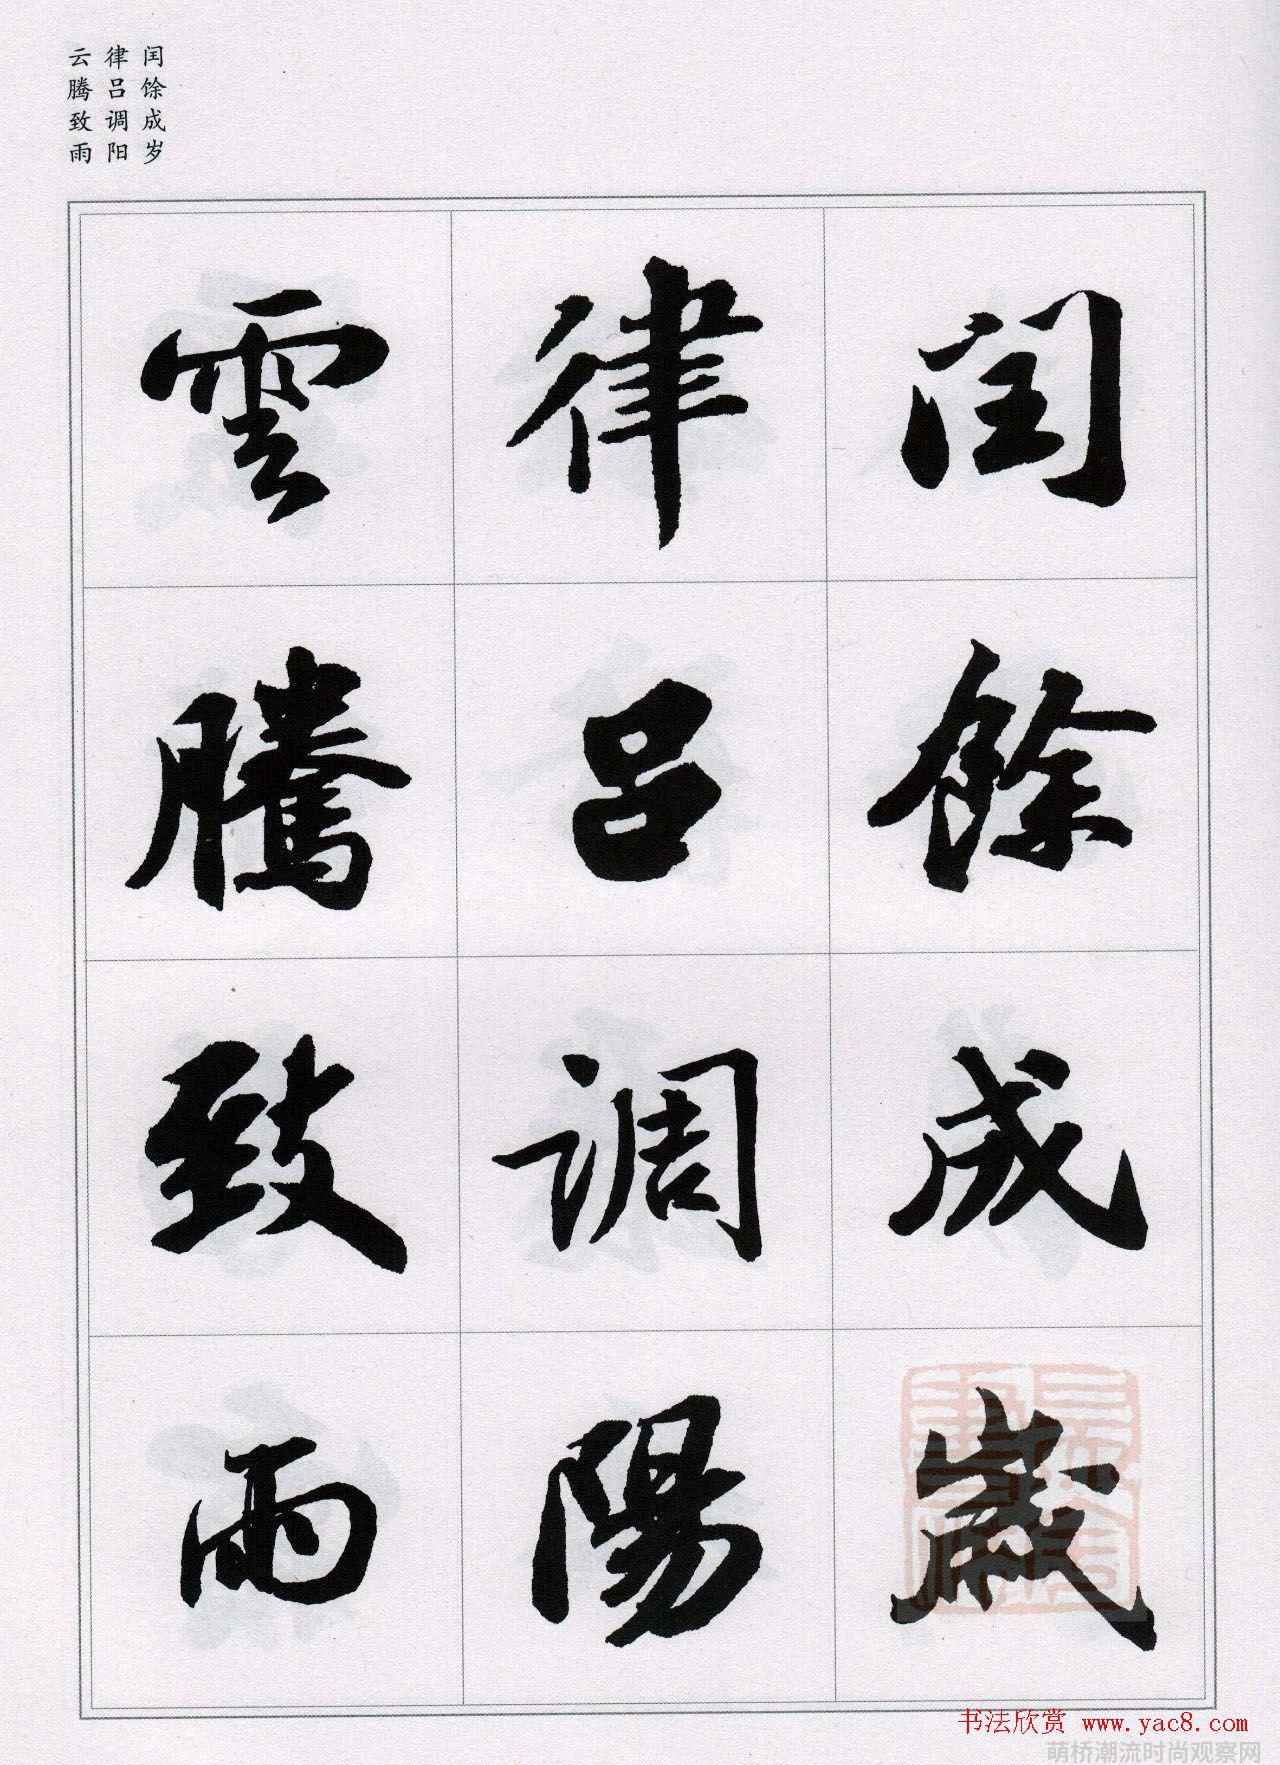 闰馀成岁
律吕调阳
云腾致雨
閏餘成歲
律吕調陽
雲騰致雨
书法欣赏 www.yac8.com
萌桥潮流时尚观察网